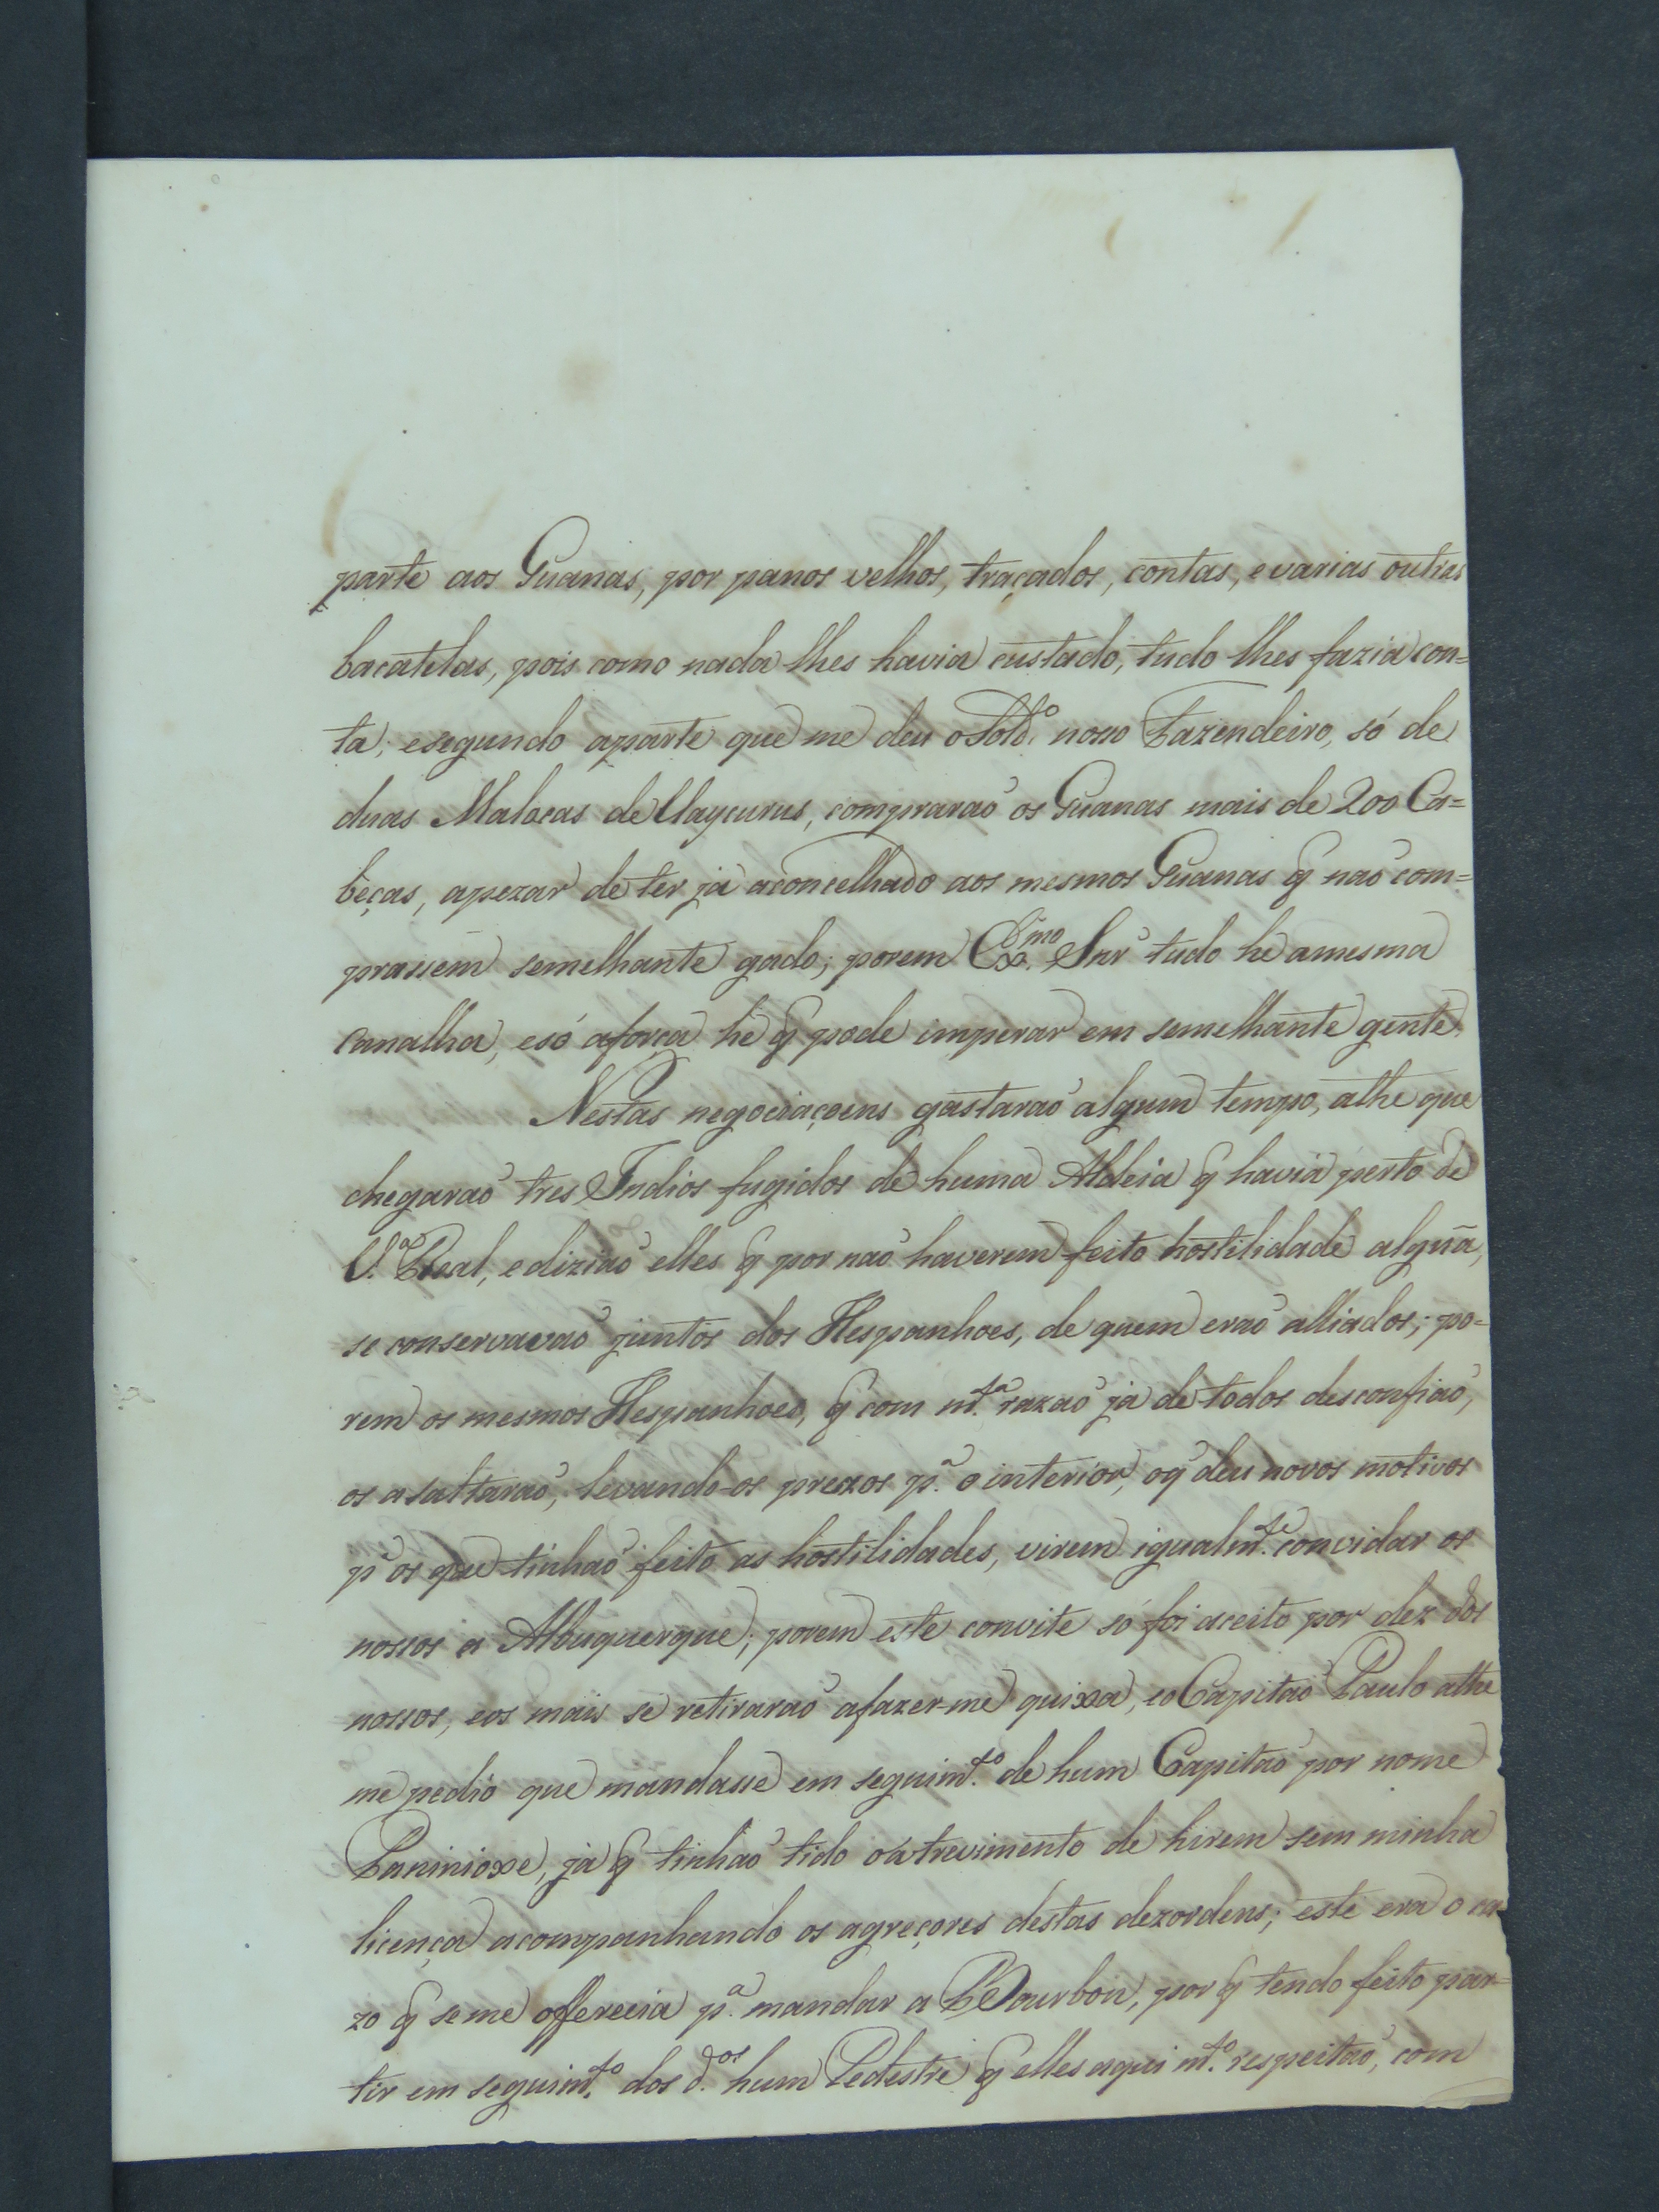 parte aos Guanas, por panos velhos, traçados, contas, e varias outras
bacatelas, pois como nada lhes havia custado, tudo lhes fazia con=
ta; e segundo aparte que me deu o Sold.º nosso Fazendeiro, só de
duas Malocas de Uaycurus, comprarão os Guanas mais de 200 Ca=
beças, apezar de ter já aconcelhado aos mesmos Guanas q̃ não com=
prassem semelhante gado; porem Ex.mo Snr' tudo he amesma
canalha, e só aforça he q̃ pode imperar em semelhante gente.
Nestas negociaçoens gastarão algum tempo, athe que
chegarão tres Indios fugidos de huma Aldeia q̃ havia perto de
V.ª Real, e dizião elles q̃ por não haverem feito hostilidade algũa,
se conservavão juntos dos Hespanhoes, de quem erão alliados; po=
rem os mesmos Hespanhoes, q̃ com mt.ª razão já de todos desconfião,
os asaltarão, levando-os prezos p.ª o interior, oq̃ deu novos motivos
p.ª os que tinhão feito as hostilidades, virem igualm.te convidar os
nossos a Albuquerque; porem este convite só foi aceito por dez dos
nossos, eos mais se retirarão afazer-me quixa, eo Capitão Paulo athe
me pedio que mandasse em seguim.to de hum Capitão por nome
Paninioxe, já q̃ tinhão tido o atrevimento de hirem sem minha
licença acompanhando os agreçores destas dezordens; este era o ca
zo q̃ seme offerecia p.ª mandar a Bourbon, por q̃ tendo feito par=
tir em seguim.to dos d.os hum Pedestre q̃ elles aqui mt.º respeitão, com